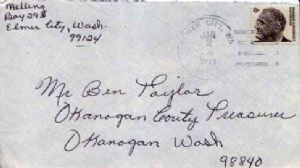 Melling
Box 293
Elmer City, Wash.
99124
ELMER CITY, WA.
JAN
2
6¢
Mr Ben Taylor
Okanogan Couty Treasurer
Okanogan Wash
98840